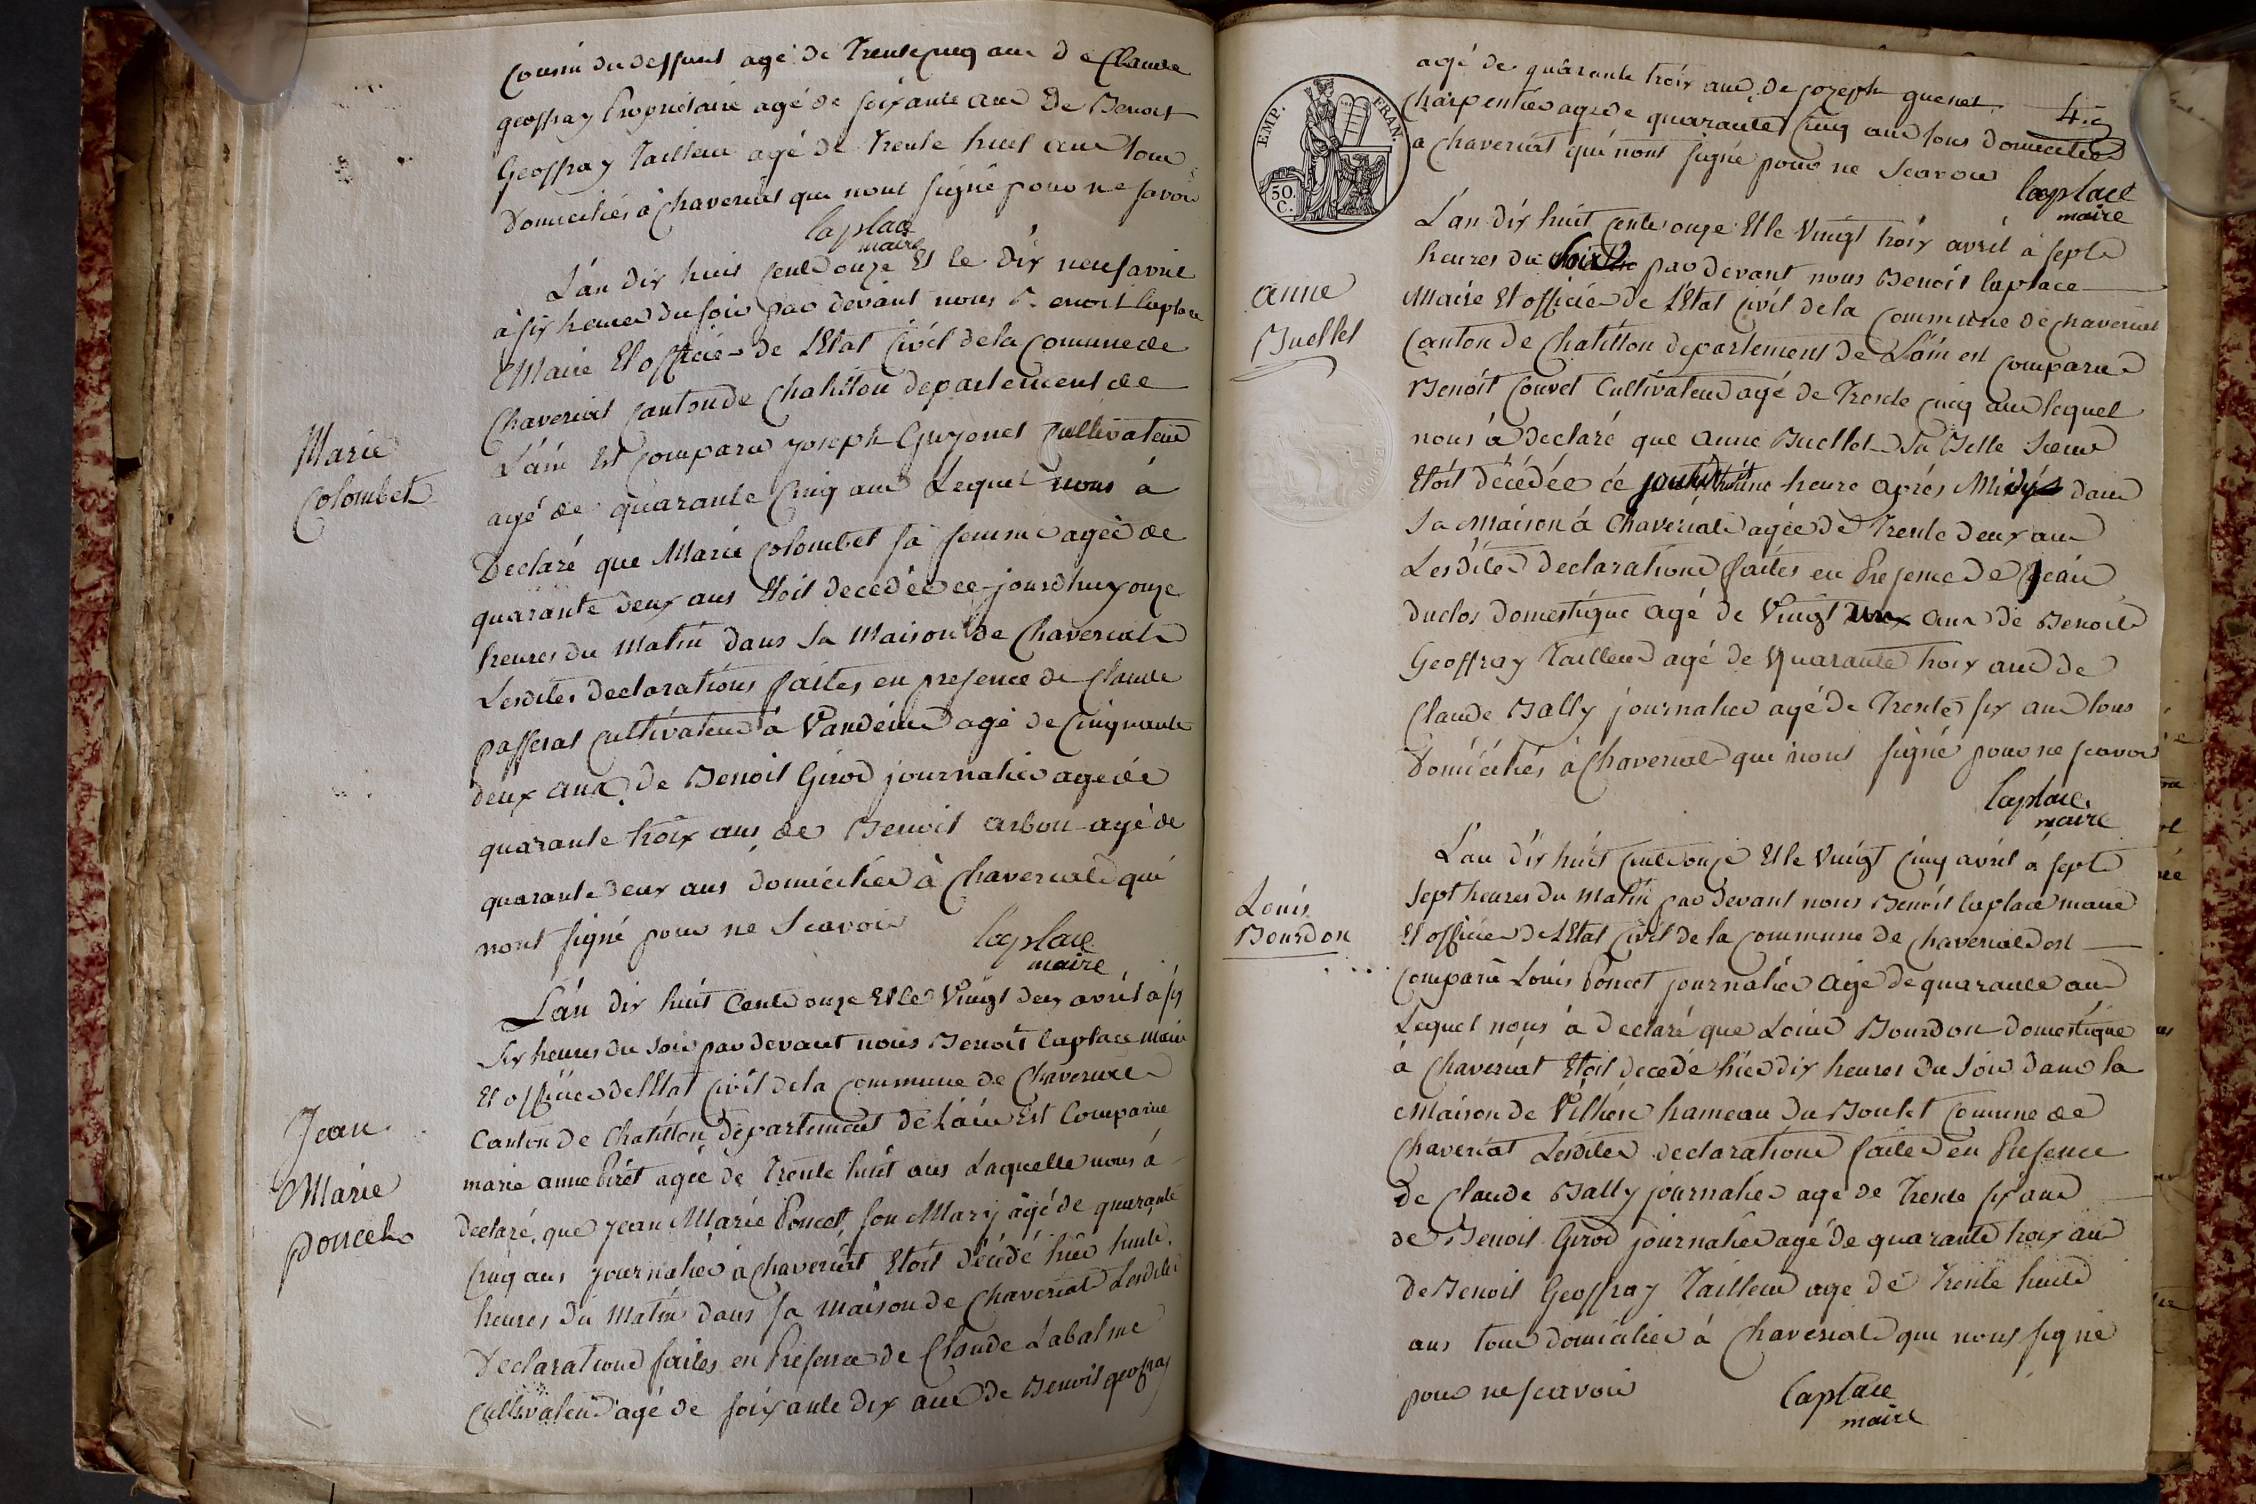 Cousin du deffunt agé de Trente cinq ans de Claude
geoffray Propriétaire agé de soixante ans de Benoit
Geoffray Tailleur agé de Trente huit ans tous
Domiciliés à Chaveriat qui nont signé pour ne savoir
laplace
maire
L'an dix huit cent onze Et le dix neuf avril
à six heures du soir par devant nous Benoit laplace
Maire Et officier de L'Etat Civil de la Comune de
Chaveriat Canton de Chatillon departement de
L'ain Est Comparu joseph Guyonet Cultivateur
agé de quarante Cinq ans Lequel nous à
Declaré que Marie Colombet sa femme agée de
quarante deux ans Etoit decedée ce jourdhuy onze
heures du Matin dans sa Maison de Chaveriat
Lesdites declarations faites en presence de Claude
passerat cultivateur à Vandeins agé de Cinquante
deux ans, de Benoit Girod journalier agé de
quarante trois ans de Benoit arbon agé de
quarante deux ans domicilié à Chaveriat qui
nont signé pour ne Scavoir
laplace
maire
Marie
Colombet
L'an dix huit Cent onze Et le Vingt deux avril à six
six heures du Soir par devant nous Benoit laplace Maire
Et officier de l'Etat Civil de la Commune de Chaveriat
Canton de Chatillon departement de L'ain Est Comparue
marie anne Piret agée de Trente huit ans Laquelle nous à
Declaré, que jean Marie Poncet, son Mary agé de quarante
Cinq ans journalier à chaveriat Etoit décédé hier huit
heures du Matin dans sa maison de Chaveriat Lesdites
Declarations faites en Presence de Claude Labalme
Cultivateur agé de soixante dix ans de Benoit geoffray
Jean
Marie
poncet
EMP. FRAN.
50.
C.
agé de quarante trois ans, de jozeph guenet
Charpentier agé de quarante Cinq ans tous domiciliés
a Chaveriat qui nont signé pour ne Scavoir
laplace
maire
L'an dix huit Cent onze Et le Vingt trois avril à sept
heures du Soir par devant nous Benoit laplace
Maire Et officier de L'Etat Civil de la Commune de Chaveriat
Canton de Chatillon departement de L'ain est comparu
Benoit Couvet Cultivateur agé de Trente cinq ans lequel
nous à declaré que anne Buellet Sa Belle Soeur
Etoit décédée ce heure après Midy dans
Sa Maison à Chaveriat agée de Trente deux ans
Lesdites declarations faites en Presence de Jean
duclos domestique agé de Vingt ans de Benoit
Geoffray Tailleur agé de Quarante trois ans de
Claude Bally journalier agé de Trente six ans tous
Domiciliés à Chaveriat qui nont signé pour ne scavoir
laplace
maire
anne
Buellet
L'an dix huit Cent onze Et le Vingt Cinq avril à sept
sept heures du Matin par devant nous Benoit laplace maire
Et officier de L'Etat Civil de la Commune de Chaveriat est
Comparu Louis Poncet journalier agé de quarante ans
Lequel nous à declaré que Louis Bourdon domestique
à Chaveriat Etoit decedé hier dix heures du Soir dans la
Maison de hameau du Comune de
Chaveriat Lesdites declarations faites en Presence
de Claude Bally journalier agé de Trente six ans
de Benoit Girod journalier agé de quarante trois ans
de Benoit Geoffray Tailleur agé de Trente huit
ans tous domicilié à Chaveriat qui nont signé
pour ne scavoir
laplace
maire
Louis
Bourdon